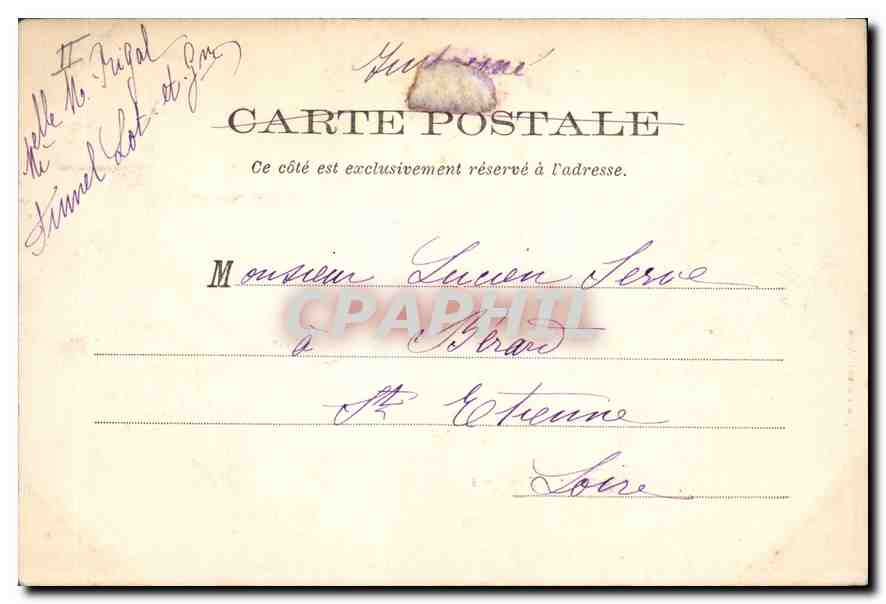 II
Melle M. Frigal
Fumel Lot-et-Gne
Imprimé
CARTE POSTALE
Ce côté est exclusivement réservé à l'adresse.
Monsieur Lucien Serve
CPAPHIL
à Bérard
St Etienne
Loire